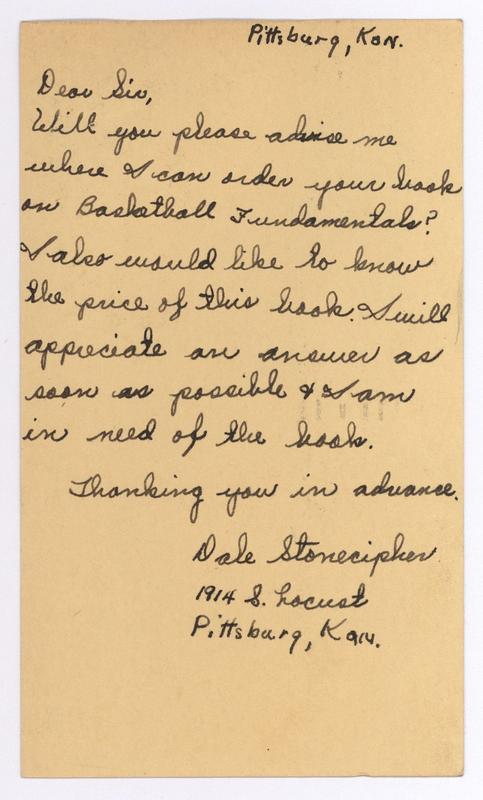 Pittsburg, Kan.
Dear Sir,
Will you please advise me
where I can order your book
on Basketball Fundamentals?
I also would like to know
the price of this book. I will
appreciate an answer as
soon as possible & I am
in need of the book.
Thanking you in advance.
Dale Stonecipher
1914 S. Locust
Pittsburg, Kan.